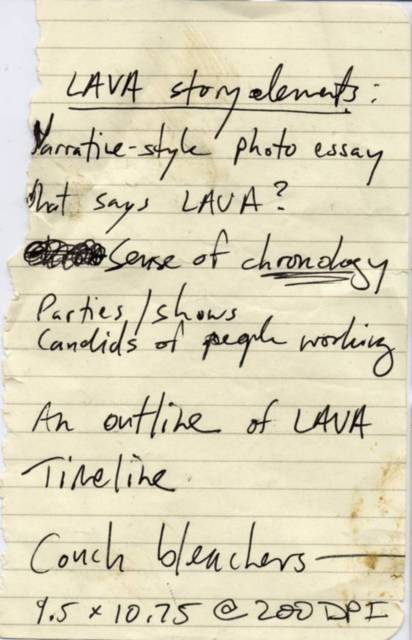 LAVA story elements:
Narrative-style photo essay
What says LAVA?
Sense of chronology
Parties/shows
Candids of people working
An outline of LAVA
Timeline
Couch bleachers—
9.5 x 10.75 @ 200 DPI